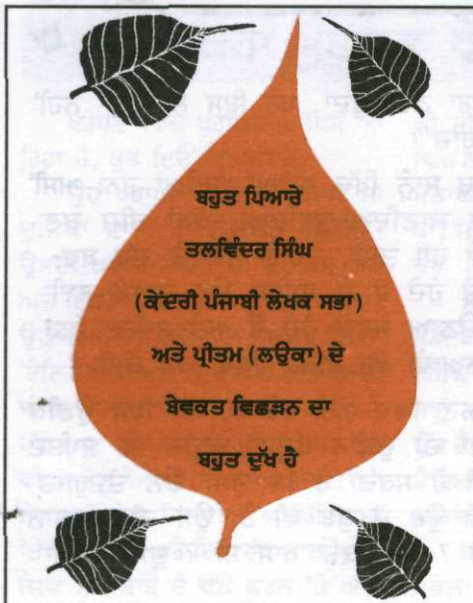 ਬਹੁਤ ਪਿਆਰੇ
ਤਲਵਿੰਦਰ ਸਿੰਘ
(ਕੇਂਦਰੀ ਪੰਜਾਬੀ ਲੇਖਕ ਸਭਾ)
ਅਤੇ ਪ੍ਰੀਤਮ (ਲਉਕਾ) ਦੇ
ਬੇਵਕਤ ਵਿਛੜਨ ਦਾ
ਬਹੁਤ ਦੁੱਖ ਹੈ